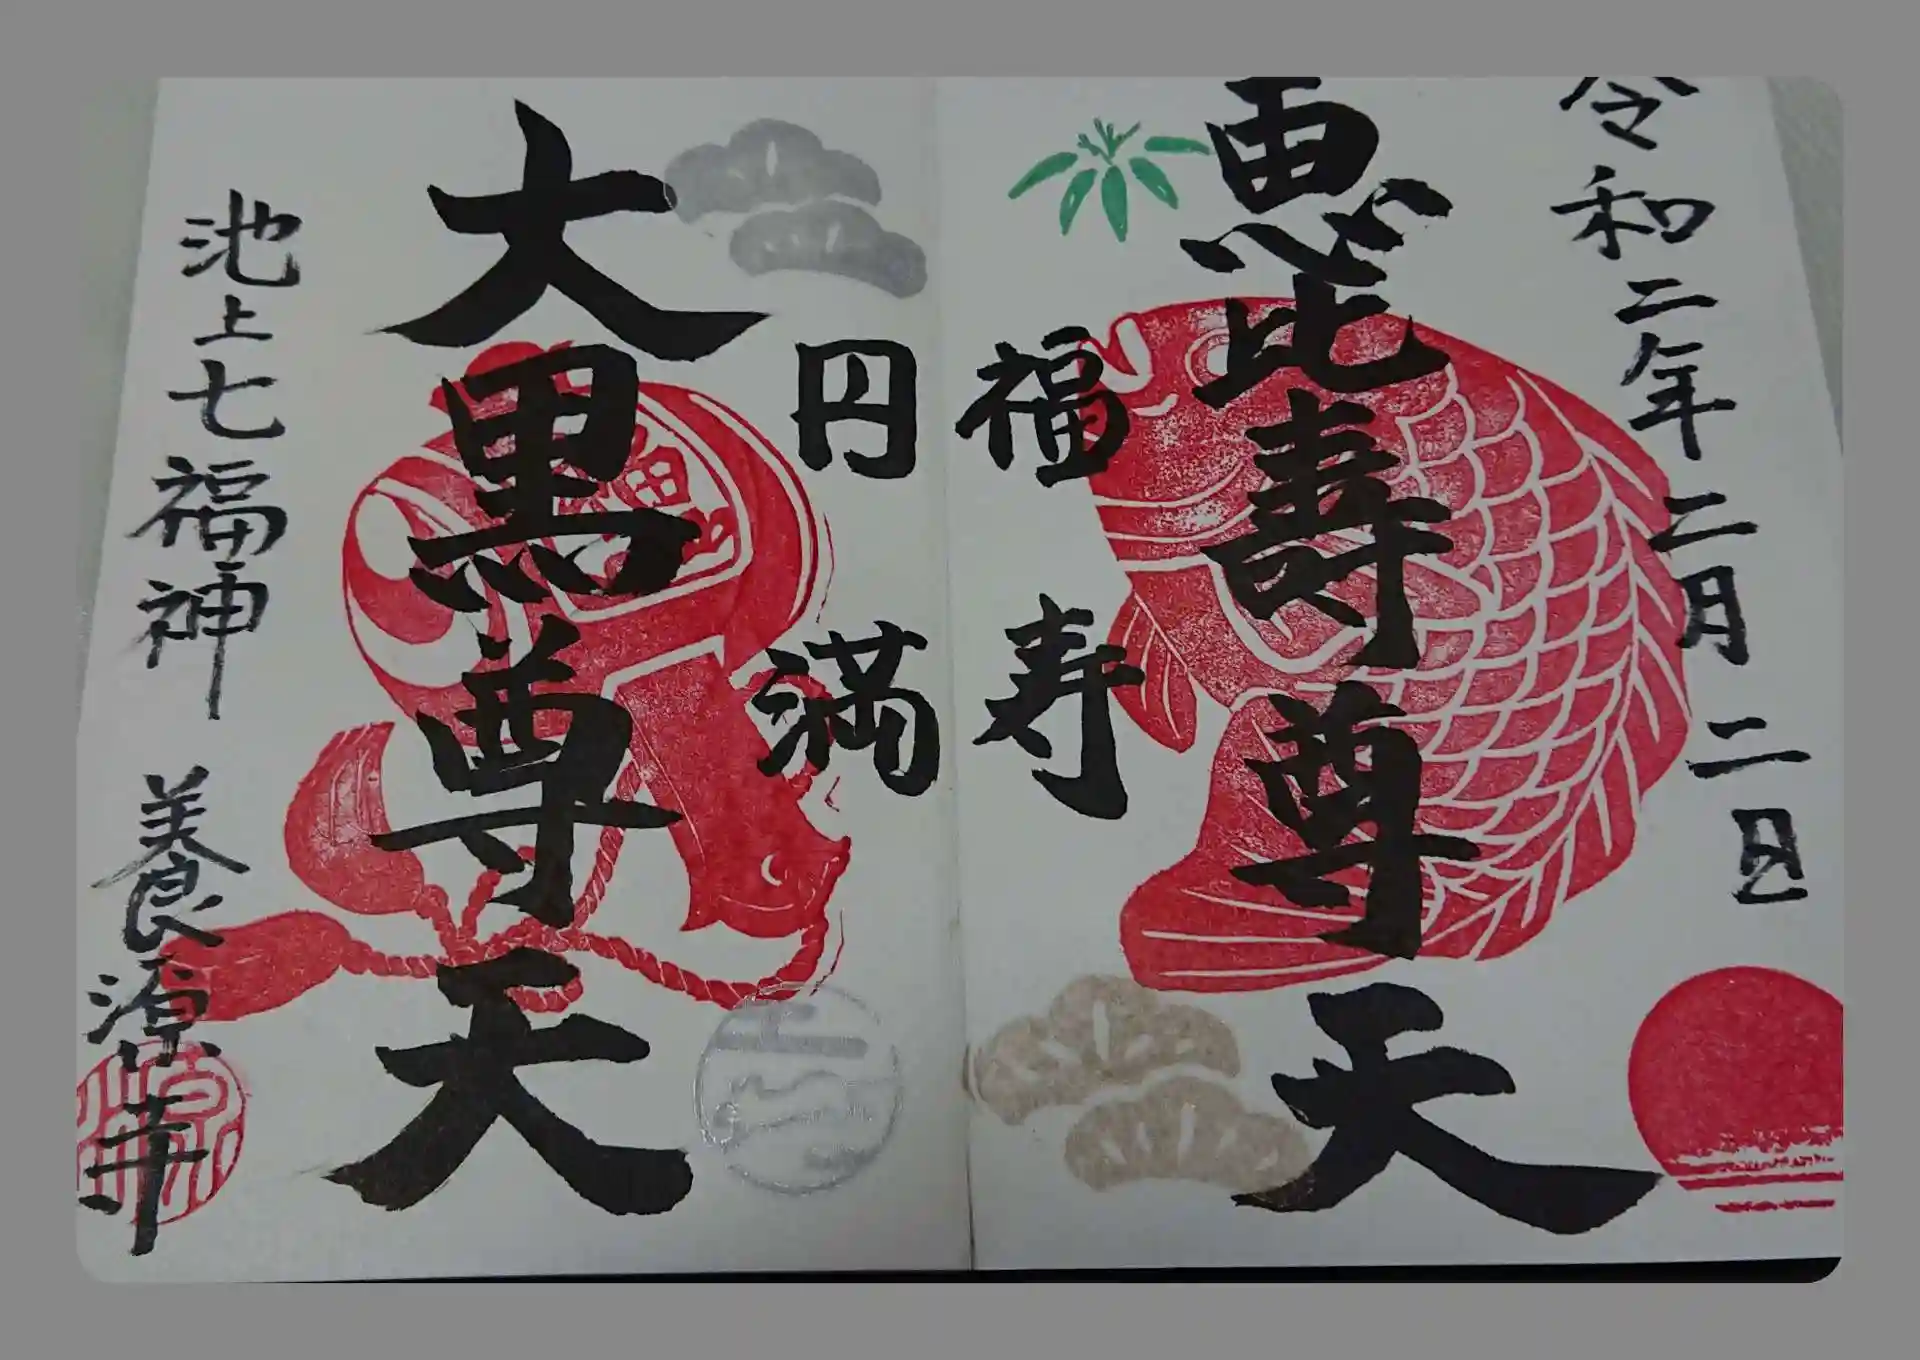 令和二年二月二日
恵比寿尊天
福寿
円満
大黒尊天
池上七福神 養源寺